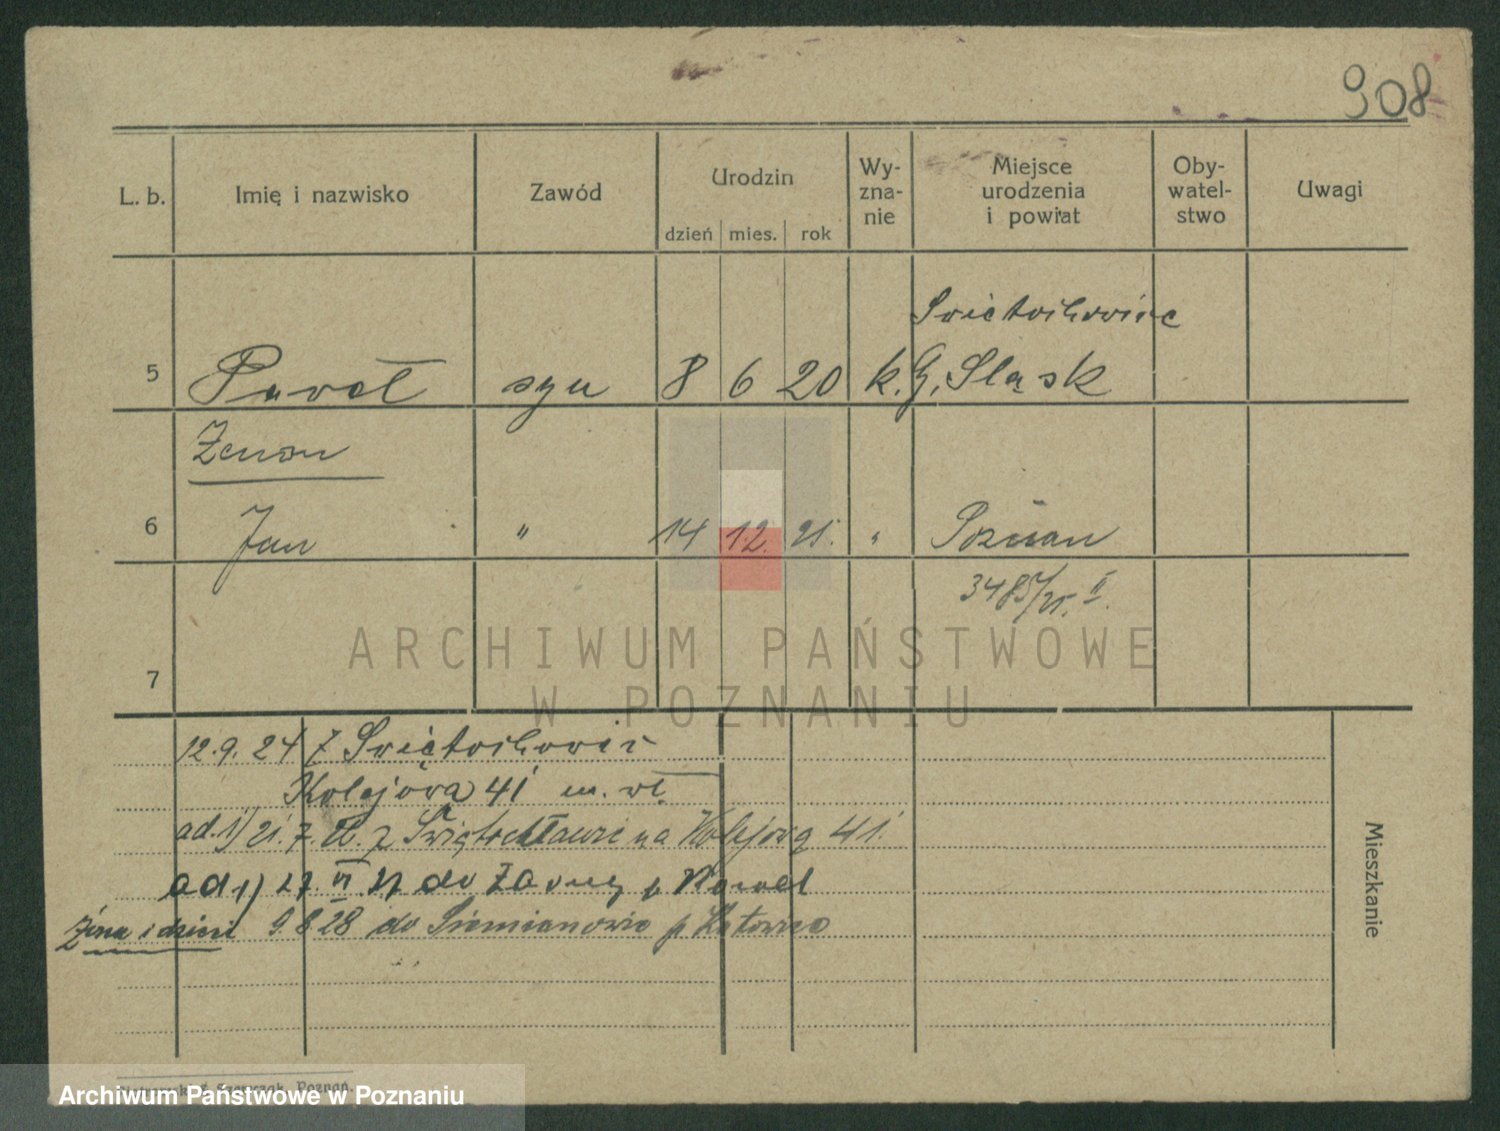 908
L. b. Imię i nazwisko Zawód Urodzin dzień mies. rok Wy-zna-nie Miejsce urodzenia i powiat Oby-watel-stwo Uwagi
Świętochowice
5 Paweł syn 8 6 20 k. G. Śląsk
Zenon
6 Jan " 14 12. 25. " Poznań
3485/25. II.
ARCHIWUM PAŃSTWOWE
7
W POZNANIU
12.9.24 z Świętochowic
Kolejowa 41 m. wł.
ad. 1) 21. 7. z Świętochłowic na Kolejową 41.
ad 1) 27. VI. do p
Żona i dzieci 9 8 28 do Siemianowic p Katowice
Mieszkanie
Szewczak, Poznań.
Archiwum Państwowe w Poznaniu